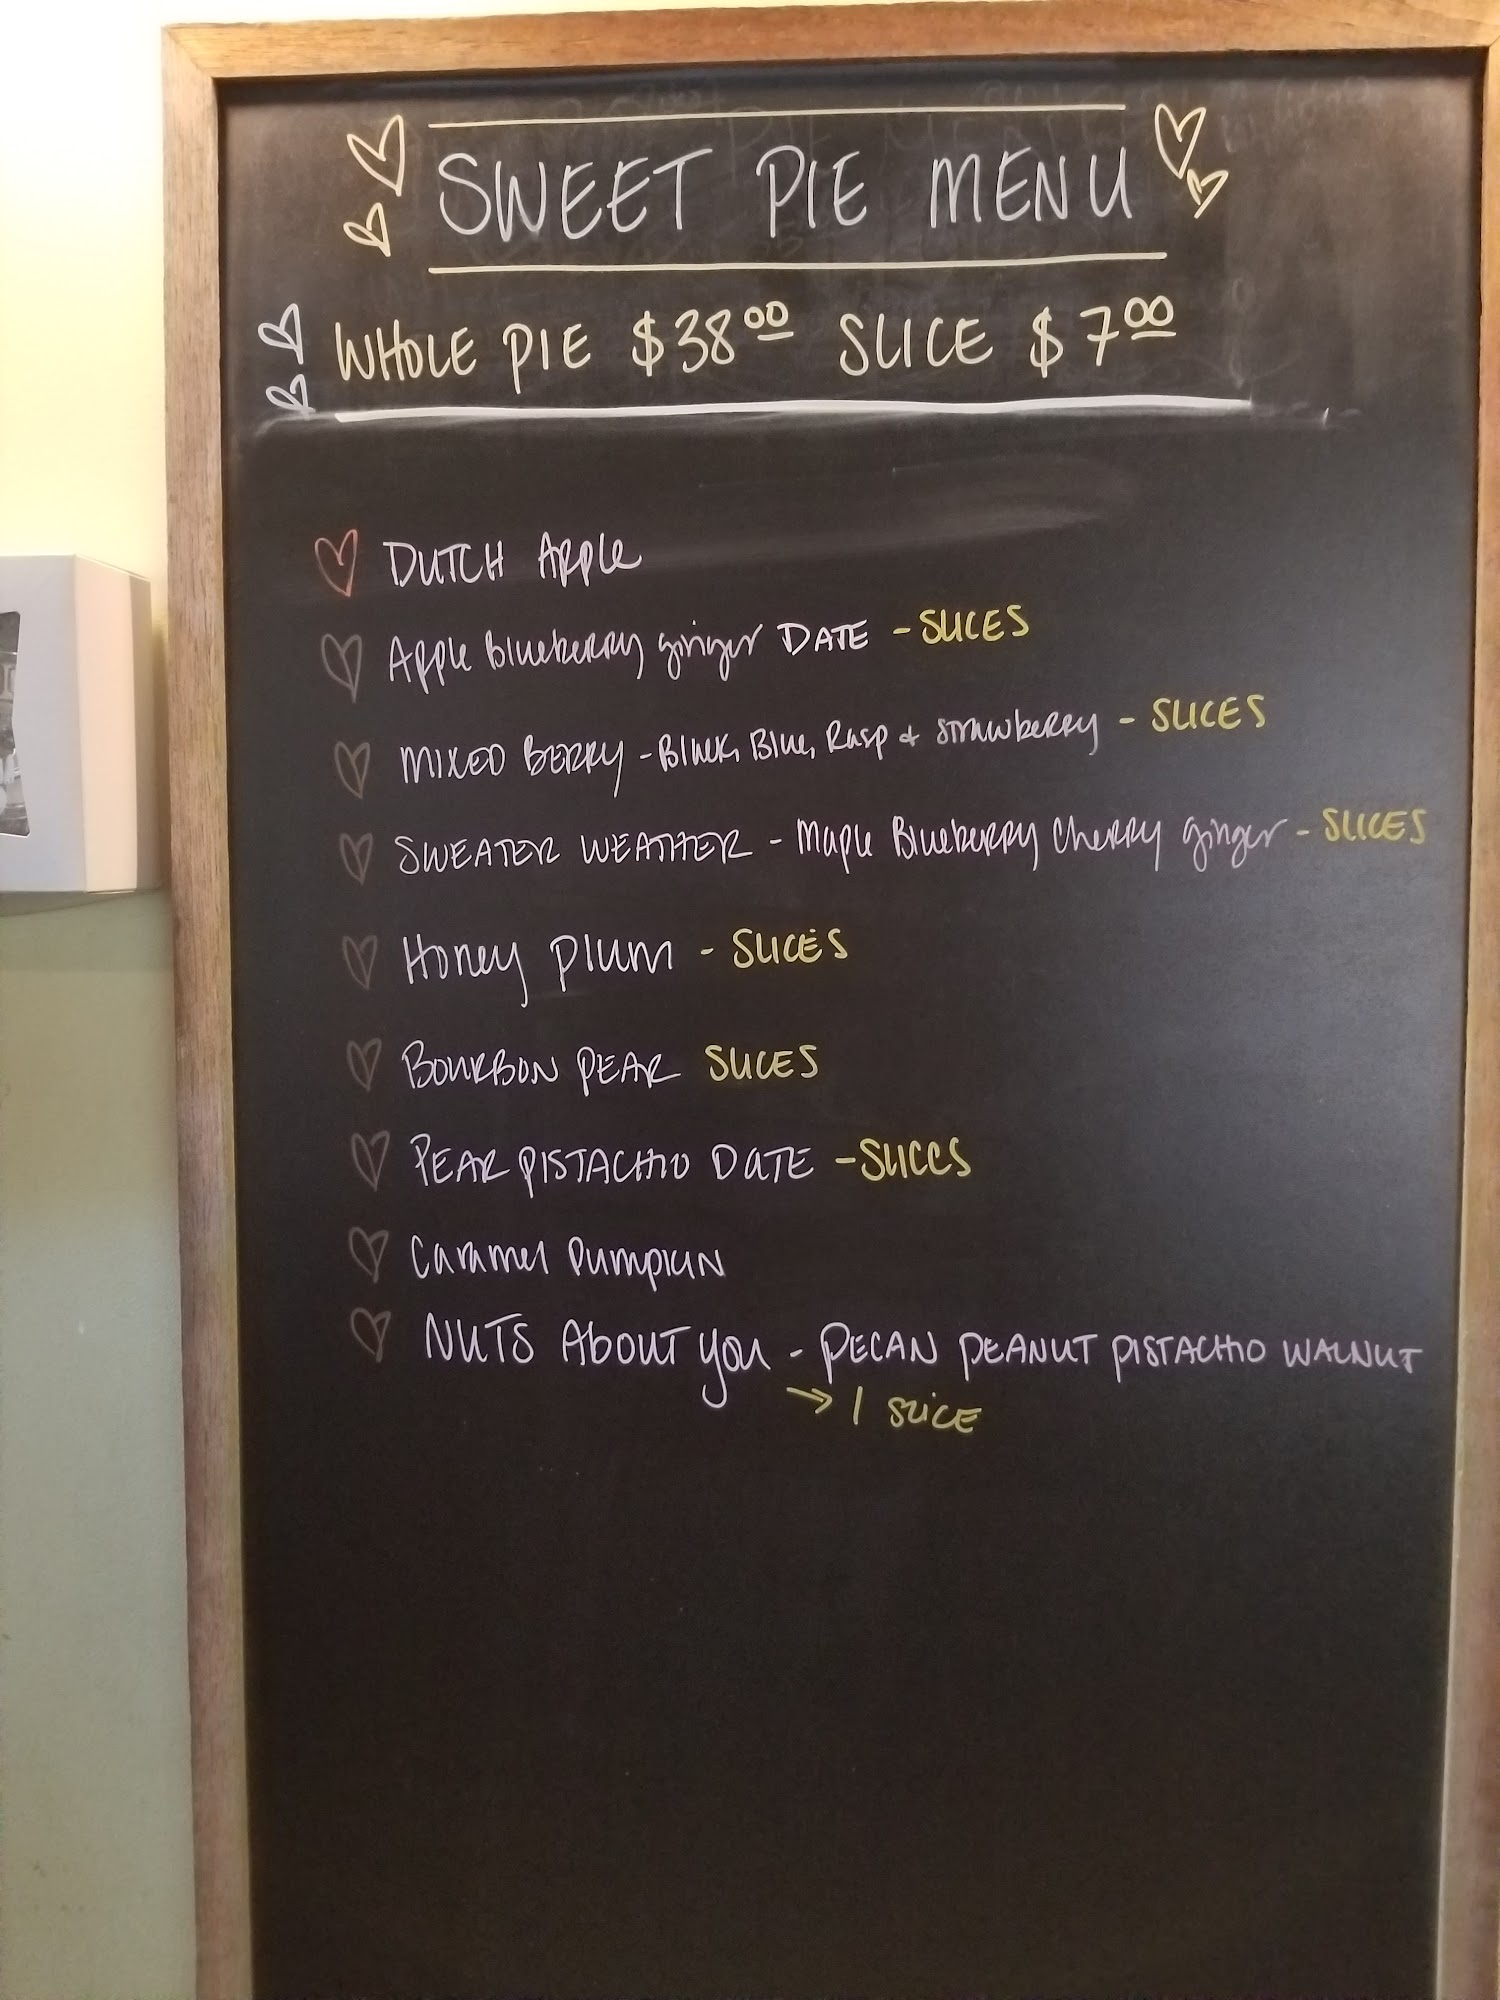 SWEET PIE MENU
WHOLE PIE $38.00 SLICE $7.00
DUTCH Apple
Apple Blueberry ginger DATE - SLICES
MIXED BERRY - Black, Blue, Rasp + strawberry - SLICES
SWEATER WEATHER - Maple Blueberry Cherry ginger - SLICES
Honey plum - SLICES
BOURBON PEAR SLICES
PEAR PISTACHIO DATE - SLICES
Caramel PUMPKIN
NUTS About you - PECAN PEANUT PISTACHIO WALNUT
→ 1 SLICE